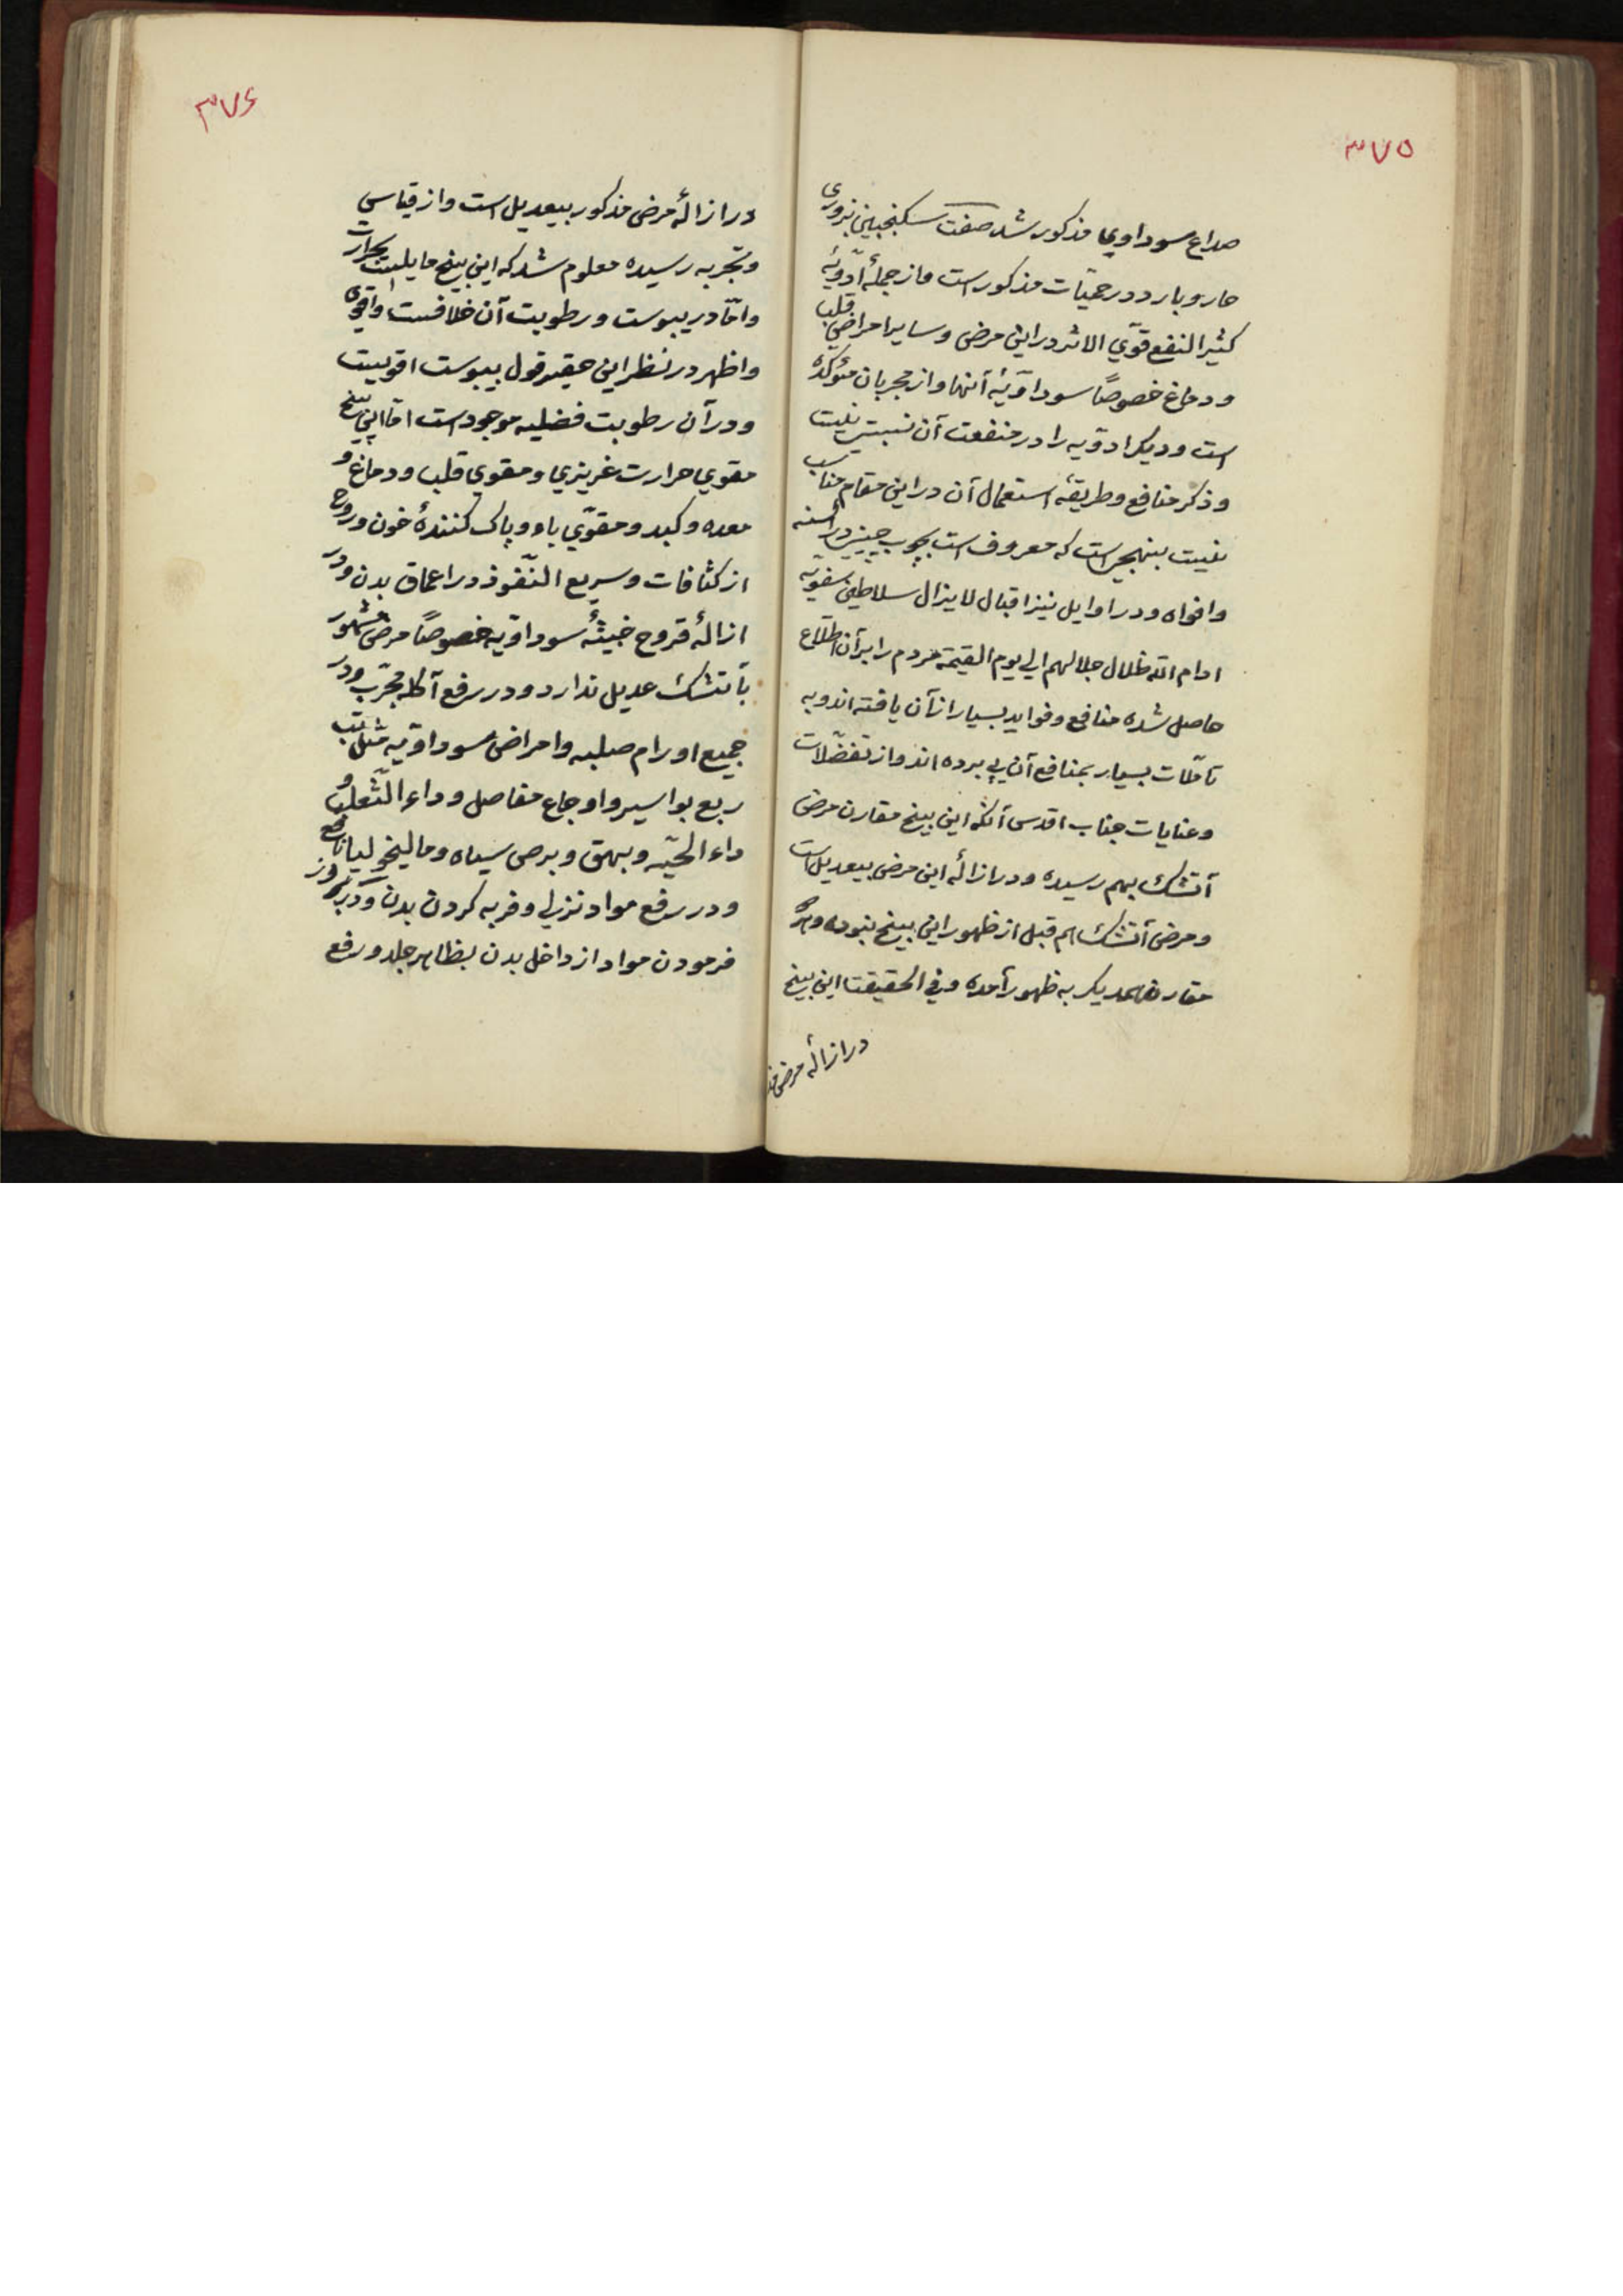 ۳۷۵
صداع سوداوی مذکور شد صفت سکنجبین بزوری
حار و بارد در حمیّات مذکور است و از جملهٔ ادویهٔ
کثیر النفع قوّی الاثر در این مرض و سایر امراض قلب
و دماغ خصوصاً سوداویّهٔ آنها و از مجربان مؤکده
است و دیکر ادویه را در منفعت آن نسبتی نیست
و ذکر منافع و طریقهٔ استعمال آن در این مقام مناسب
نیست بینهجی است که معروف است بچوب چینی در السنه
و افواه و در اوایل نیز اقبال لایزال سلاطین صفویّه
ادام الله ظلال جلالهم الی یوم القیمة مردم را بر آن اطّلاع
حاصل شده منافع و فواید بسیار از آن یافته اند و به
تأمّلات بسیار بمنافع آن پی برده اند و از تفضّلات
و عنایات جناب اقدس آنکه این بینح مقارن مرض
آتشک بهم رسیده و در ازالهٔ این مرض بیعدیل است
و مرض آتشک هم قبل از ظهور این بینح نبوده و هر
مقارن همدیکر به ظهور آمده و فی الحقیقت این بینح
در ازالهٔ مرض مذ
۳۷۶
در ازالهٔ مرض مذکور بیعدیل است و از قیاسی
و تجربه رسیده معلوم شد که این بینح مایلست بحرارت
و امّا در یبوست و رطوبت آن خلافست و اقوی
و اظهر در نظر این حقیر قول بیبوست اقوییت
و در آن رطوبت فضلیه موجود است امّا این بینح
مقوی حرارت غریزی و مقوی قلب و دماغ و
معده و کبد و مقوّی باه و پاک کنندهٔ خون و روح
از کثافات و سریع النّفوذ در اعماق بدن و در
ازالهٔ قروح خبیثهٔ سوداویّه خصوصاً مرض مشهور
بآتشک عدیل ندارد و در رفع آکله مجرّب و در
جمیع اورام صلبه و امراض سوداویّه مثل تب
ربع بواسیر و اوجاع مفاصل و داء الثّعلب و
داء الحیّه و بهق و برص سیاه و مالیخولیا نافع
و در رفع مواد نزلی و فربه کردن بدن و در بروز
فرمودن مواد از داخل بدن بظاهر جلد و رفع